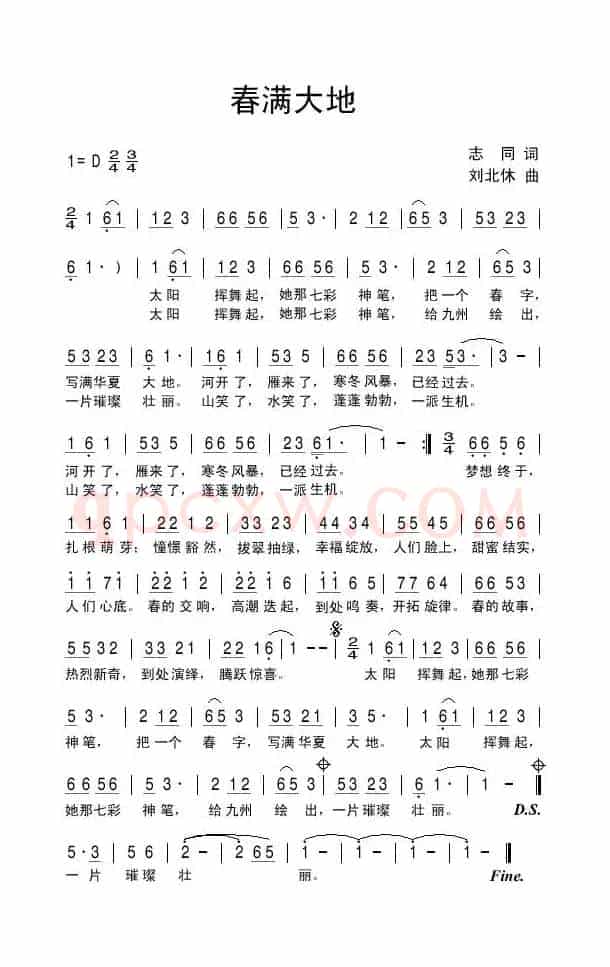 春满大地
1= D 2/4 3/4
志 同 词
刘北休 曲
2/4 1 61 | 123 | 66 56 | 5 3· | 2 12 | 65 3 | 53 23 |
6 1· ) | 1 61 | 123 | 66 56 | 5 3· | 2 12 | 65 3 |
太阳 挥舞起，她那七彩 神笔，把一个 春字，
太阳 挥舞起，她那七彩 神笔，给九州 绘出，
53 23 | 6 1· | 1 6 1 | 53 5 | 66 56 | 23 53· | 3 – |
写满华夏 大地。河开了，雁来了，寒冬风暴，已经过去。
一片璀璨 壮丽。山笑了，水笑了，蓬蓬勃勃，一派生机。
1 6 1 | 53 5 | 66 56 | 23 61· | 1 – :| 3/4 66 5 6 |
河开了，雁来了，寒冬风暴，已经过去。 梦想终于，
山笑了，水笑了，蓬蓬勃勃，一派生机。
qpcxw.COM
11 6 1 | 22 1 2 | 33 2 1 | 44 34 | 55 45 | 66 56 |
扎根萌芽；憧憬豁然，拔翠抽绿，幸福绽放，人们脸上，甜蜜结实，
11 71 | 22 12 | 33 21 | 11 65 | 77 64 | 66 53 |
人们心底。春的交响，高潮迭起，到处鸣奏，开拓旋律。春的故事，
5532 | 33 21 | 221 | 1 – – | 2/4 1 61 | 123 | 66 56 |
热烈新奇，到处演绎，腾跃惊喜。 太阳 挥舞起，她那七彩
5 3· | 2 12 | 65 3 | 53 21 | 3 5· | 1 61 | 123 |
神笔， 把一个 春字，写满华夏 大地。太阳 挥舞起，
66 56 | 5 3· | 2 12 | 65 3 | 53 23 | 6 1· | 1 – ||
她那七彩 神笔，给九州 绘出，一片璀璨 壮丽。 D.S.
5·3 | 5 6 | 2 – | 2 65 | 1 – | 1 – | 1 – ||
一片 璀璨 壮 丽。 Fine.